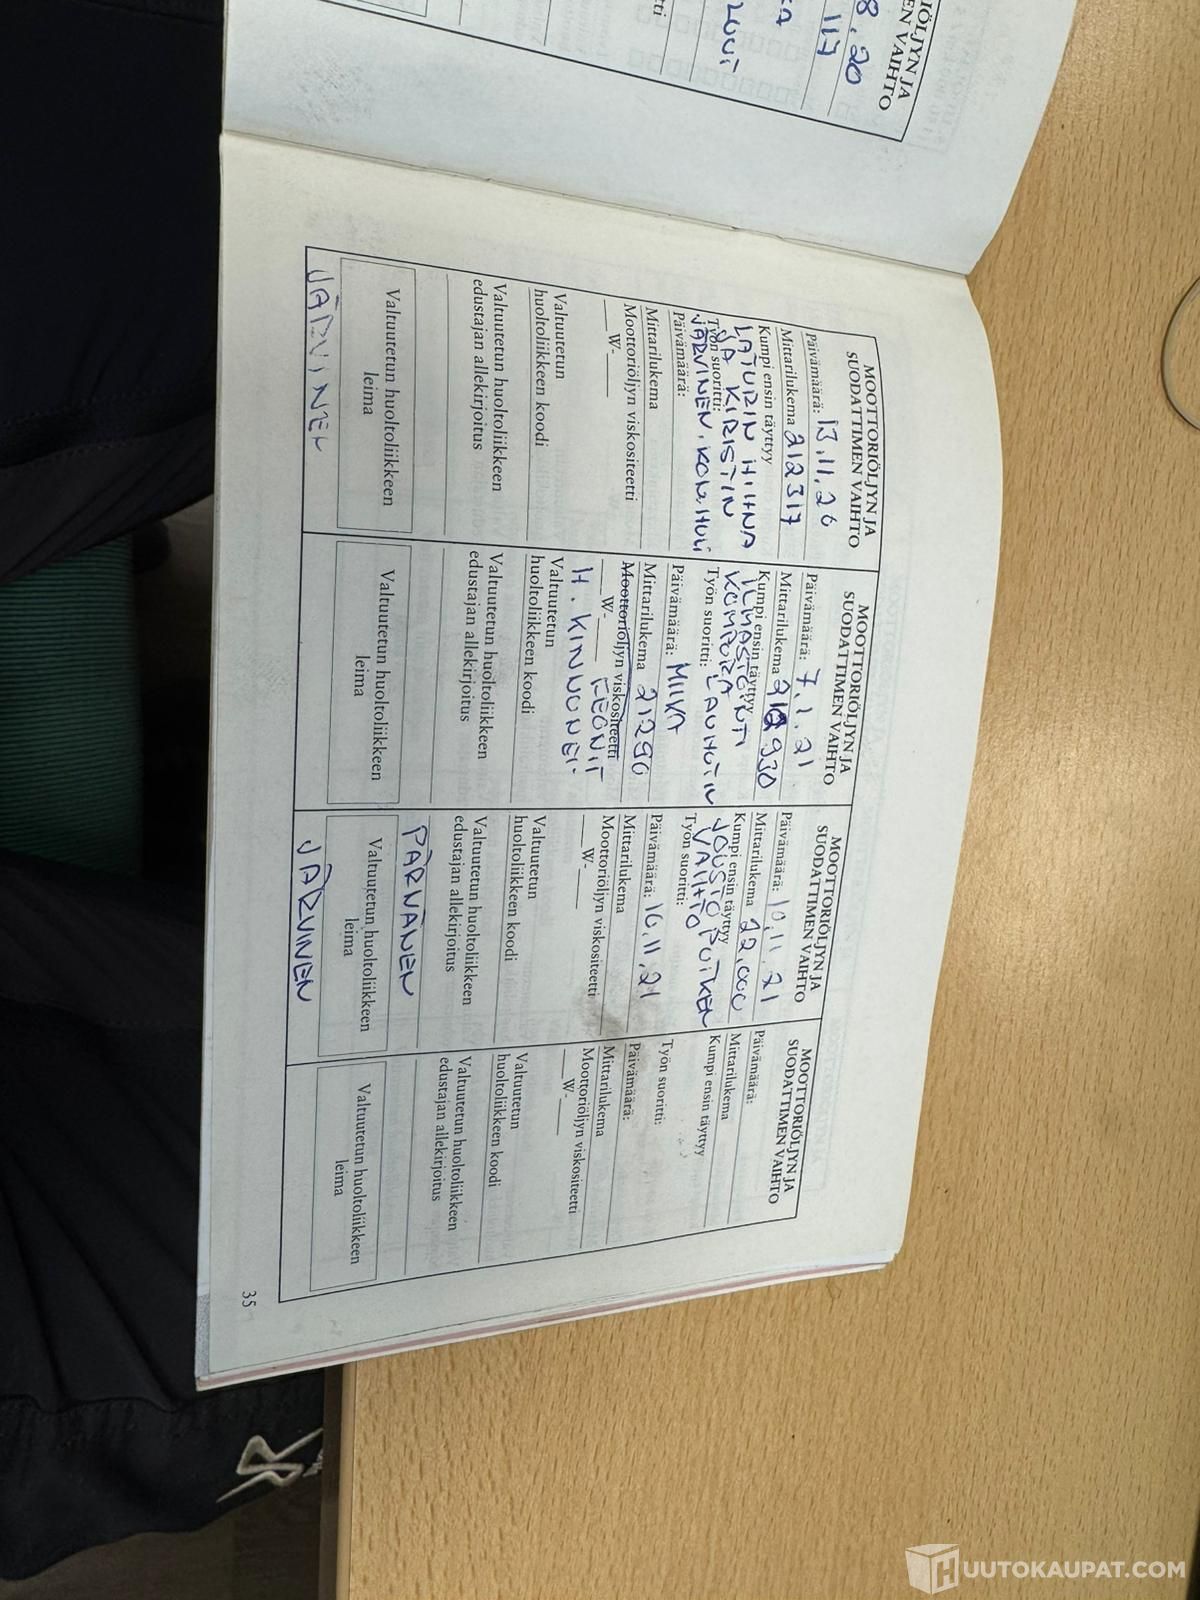 8.20
117
MOOTTORIÖLJYN JA
SUODATTIMEN VAIHTO
Päivämäärä: 13.11.20
Mittarilukema 212317
Kumpi ensin täyttyy
LATURIN HIHNA
JA KIRISTIN
Työn suoritti:
JÄRVINEN. KON.HUL
Päivämäärä:
Mittarilukema
Moottoriöljyn viskositeetti
___W-___
Valtuutetun
huoltoliikkeen koodi
Valtuutetun huoltoliikkeen
edustajan allekirjoitus
Valtuutetun huoltoliikkeen
leima
JÄRVINEN
MOOTTORIÖLJYN JA
SUODATTIMEN VAIHTO
Päivämäärä: 7.1.21
Mittarilukema
Kumpi ensin täyttyy
ILMASTOINTI
KOMPURA
Työn suoritti: LAUHUTIN
Päivämäärä: MIIKA
Mittarilukema 21290
Moottoriöljyn viskositeetti
___W-___
H. KINNUNEN
Valtuutetun
huoltoliikkeen koodi
Valtuutetun huoltoliikkeen
edustajan allekirjoitus
Valtuutetun huoltoliikkeen
leima
MOOTTORIÖLJYN JA
SUODATTIMEN VAIHTO
Päivämäärä: 10.11.21
Mittarilukema 22.000
Kumpi ensin täyttyy
JOUSTO PUTKEN
VAIHTO
Työn suoritti:
Päivämäärä: 10.11.21
Mittarilukema
Moottoriöljyn viskositeetti
___W-___
Valtuutetun
huoltoliikkeen koodi
Valtuutetun huoltoliikkeen
edustajan allekirjoitus
PÄRNÄNEN
Valtuutetun huoltoliikkeen
leima
JÄRVINEN
MOOTTORIÖLJYN JA
SUODATTIMEN VAIHTO
Päivämäärä:
Mittarilukema
Kumpi ensin täyttyy
Työn suoritti:
Päivämäärä:
Mittarilukema
Moottoriöljyn viskositeetti
___W-___
Valtuutetun
huoltoliikkeen koodi
Valtuutetun huoltoliikkeen
edustajan allekirjoitus
Valtuutetun huoltoliikkeen
leima
35
HUUTOKAUPAT.COM